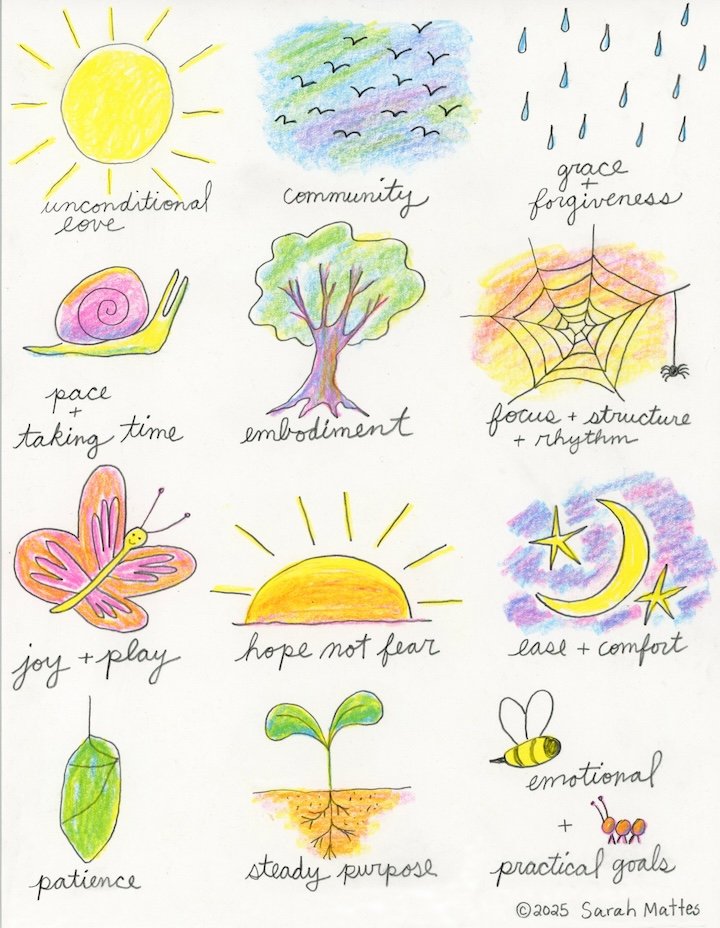 unconditional
love
community
grace
+
forgiveness
pace
+
taking time
embodiment
focus + structure
+ rhythm
joy + play
hope not fear
ease + comfort
patience
steady purpose
emotional
+
practical goals
©2025 Sarah Mattes